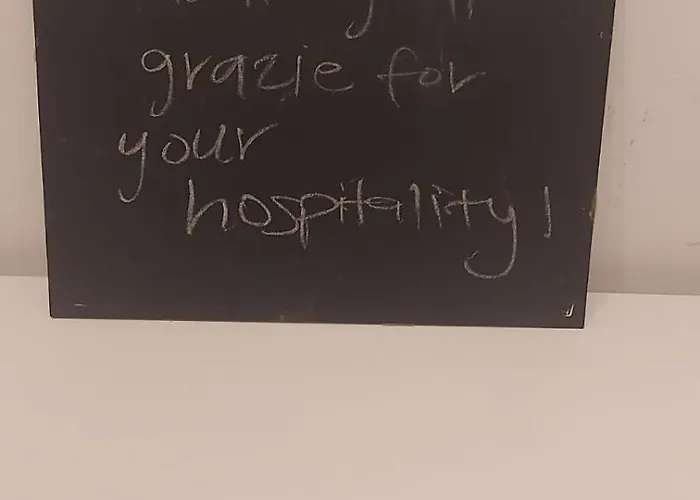 grazie for
your
hospitality!